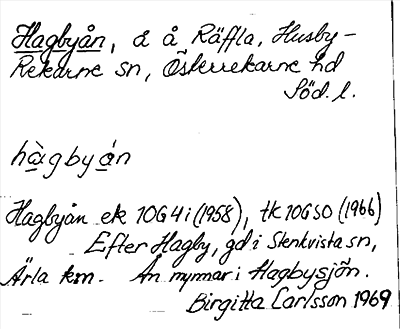 Hagbyån, å Räffla, Husby-
Rekarne sn, Österrekarne hd
Söd. l.
hàgbyán
Hagbyån ek 10G4i (1958), tk 10GSO (1966)
Efter Hagby, gd i Stenkvista sn,
Ärla km. Ån mynnar i Hagbysjön.
Birgitta Carlsson 1969